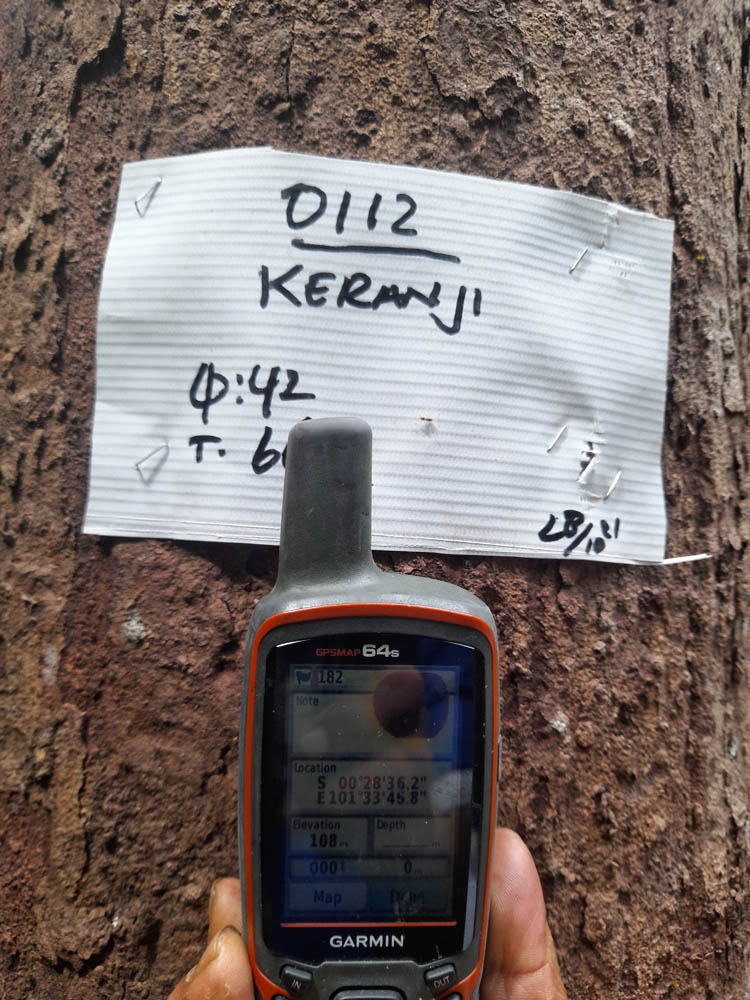 0112
KERANJI
Φ: 42
T.
GPSMAP 64s
182
Note
Location
S 00°28'36.2"
E 101°33'45.8"
Elevation
Depth
108 m
0 m
Map
GARMIN
IN
OUT